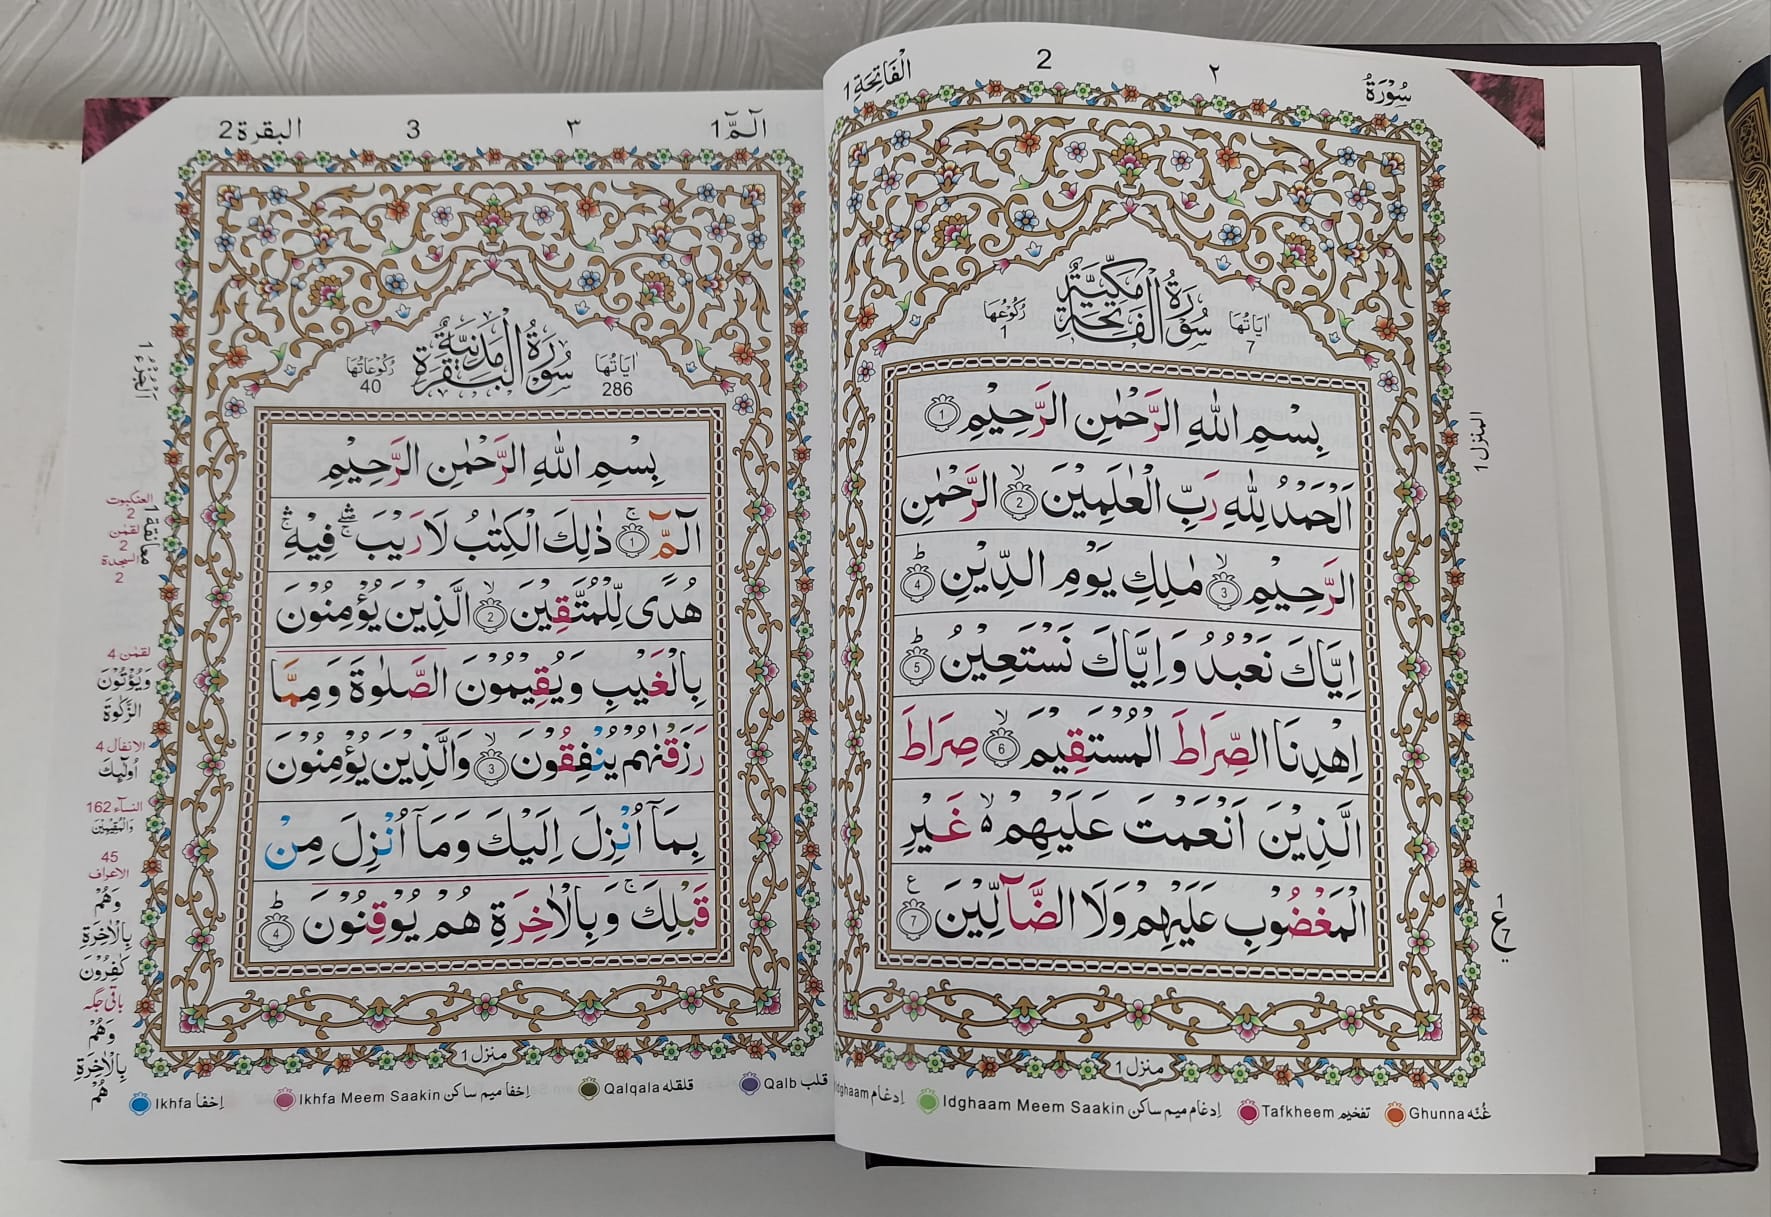 سُوْرَةُ ٢ 2 الْفَاتِحَة 1
سُوْرَةُ الْفَاتِحَةِ مَكِّيَّةٌ
اٰيَاتُهَا 7
رُكُوْعُهَا 1
بِسْمِ اللّٰهِ الرَّحْمٰنِ الرَّحِيْمِ 1
اَلْحَمْدُ لِلّٰهِ رَبِّ الْعٰلَمِيْنَ ۙ 2 الرَّحْمٰنِ
الرَّحِيْمِ ۙ 3 مٰلِكِ يَوْمِ الدِّيْنِ ؕ 4
اِيَّاكَ نَعْبُدُ وَاِيَّاكَ نَسْتَعِيْنُ ؕ 5
اِهْدِنَا الصِّرَاطَ الْمُسْتَقِيْمَ ۙ 6 صِرَاطَ
الَّذِيْنَ اَنْعَمْتَ عَلَيْهِمْ ۙ۬ غَيْرِ
الْمَغْضُوْبِ عَلَيْهِمْ وَلَا الضَّآلِّيْنَ 7 ع
المنزل 1
1 ع 7
منزل 1
Ghunna غُنّه
Tafkheem تفخیم
Idghaam Meem Saakin إدغام میم ساکن
dghaam إدغام
الٓمّٓ 1 ٣ 3 البقرة 2
سُوْرَةُ الْبَقَرَةِ مَدَنِيَّةٌ
اٰيَاتُهَا 286
رُكُوْعَاتُهَا 40
بِسْمِ اللّٰهِ الرَّحْمٰنِ الرَّحِيْمِ
الٓمّٓ ۚ 1 ذٰلِكَ الْكِتٰبُ لَا رَيْبَ ۛۖ ۚ فِيْهِ ۛۚ
هُدًى لِّلْمُتَّقِيْنَ ۙ 2 الَّذِيْنَ يُؤْمِنُوْنَ
بِالْغَيْبِ وَيُقِيْمُوْنَ الصَّلٰوةَ وَمِمَّا
رَزَقْنٰهُمْ يُنْفِقُوْنَ ۙ 3 وَالَّذِيْنَ يُؤْمِنُوْنَ
بِمَآ اُنْزِلَ اِلَيْكَ وَمَآ اُنْزِلَ مِنْ
قَبْلِكَ ۚ وَبِالْاٰخِرَةِ هُمْ يُوْقِنُوْنَ ؕ 4
اَلْجُزْءُ 1
معانقة 1
العنكبوت 2
لقمٰن 2
السجدة 2
لقمٰن 4
وَيُؤْتُوْنَ
الزَّكٰوةَ
الانفال 4
اُولٰٓئِكَ
النسآء 162
وَالْمُقِيْمِيْنَ
45
الاعراف
وَهُمْ
بِالْاٰخِرَةِ
كٰفِرُوْنَ
باقی جگہ
وَهُمْ
بِالْاٰخِرَةِ
هُمْ
منزل 1
Qalb قلب
Qalqala قلقله
Ikhfa Meem Saakin إخفا میم ساکن
Ikhfa إخفا